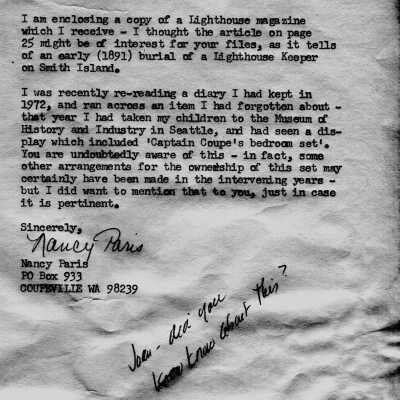 I am enclosing a copy of a Lighthouse magazine
which I receive - I thought the article on page
25 might be of interest for your files, as it tells
of an early (1891) burial of a Lighthouse Keeper
on Smith Island.
I was recently re-reading a diary I had kept in
1972, and ran across an item I had forgotten about -
that year I had taken my children to the Museum of
History and Industry in Seattle, and had seen a dis-
play which included 'Captain Coupe's bedroom set'.
You are undoubtedly aware of this - in fact, some
other arrangements for the ownership of this set may
certainly have been made in the intervening years -
but I did want to mention that to you, just in case
it is pertinent.
Sincerely,
Nancy Paris
Nancy Paris
PO Box 933
COUPEVILLE WA 98239
Joan - did you
know know about this?